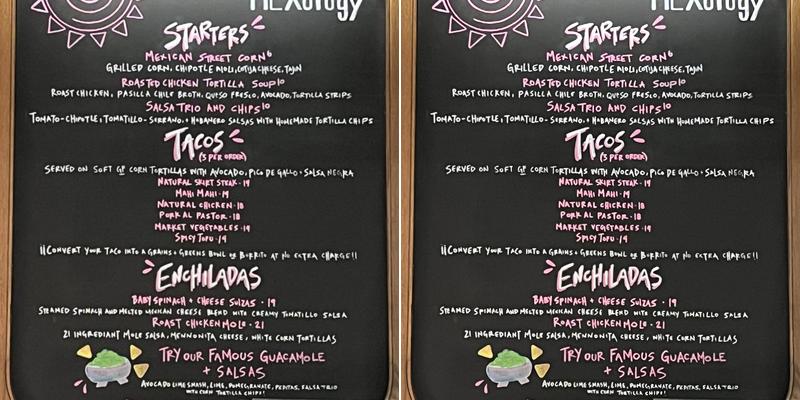 MEXology
STARTERS
MEXICAN STREET CORN 6
GRILLED CORN, CHIPOTLE AIOLI, COTIJA CHEESE, TAJIN
ROASTED CHICKEN TORTILLA SOUP 10
ROAST CHICKEN, PASILLA CHILE BROTH, QUESO FRESCO, AVOCADO, TORTILLA STRIPS
SALSA TRIO AND CHIPS 10
TOMATO-CHIPOTLE, TOMATILLO-SERRANO, + HOBANERO SALSAS WITH HOMEMADE TORTILLA CHIPS
TACOS
(3 PER ORDER)
SERVED ON SOFT GF CORN TORTILLAS WITH AVOCADO, PICO DE GALLO + SALSA NEGRA
NATURAL SKIRT STEAK - 19
MAHI MAHI - 19
NATURAL CHICKEN - 18
PORK AL PASTOR - 18
MARKET VEGETABLES - 19
SPICY TOFU - 19
¡¡CONVERT YOUR TACO INTO A GRAINS + GREENS BOWL OR BURRITO AT NO EXTRA CHARGE!!
ENCHILADAS
BABY SPINACH + CHEESE SUIZAS - 19
STEAMED SPINACH AND MELTED MEXICAN CHEESE BLEND WITH CREAMY TOMATILLO SALSA
ROAST CHICKEN MOLE - 21
21 INGREDIANT MOLE SALSA, MENNONITA CHEESE, WHITE CORN TORTILLAS
TRY OUR FAMOUS GUACAMOLE
+ SALSAS
AVOCADO LIME SMASH, LIME, POMEGRANATE, PEPITAS, SALSA TRIO
WITH CORN TORTILLA CHIPS!
MEXology
STARTERS
MEXICAN STREET CORN 6
GRILLED CORN, CHIPOTLE AIOLI, COTIJA CHEESE, TAJIN
ROASTED CHICKEN TORTILLA SOUP 10
ROAST CHICKEN, PASILLA CHILE BROTH, QUESO FRESCO, AVOCADO, TORTILLA STRIPS
SALSA TRIO AND CHIPS 10
TOMATO-CHIPOTLE, TOMATILLO-SERRANO, + HOBANERO SALSAS WITH HOMEMADE TORTILLA CHIPS
TACOS
(3 PER ORDER)
SERVED ON SOFT GF CORN TORTILLAS WITH AVOCADO, PICO DE GALLO + SALSA NEGRA
NATURAL SKIRT STEAK - 19
MAHI MAHI - 19
NATURAL CHICKEN - 18
PORK AL PASTOR - 18
MARKET VEGETABLES - 19
SPICY TOFU - 19
¡¡CONVERT YOUR TACO INTO A GRAINS + GREENS BOWL OR BURRITO AT NO EXTRA CHARGE!!
ENCHILADAS
BABY SPINACH + CHEESE SUIZAS - 19
STEAMED SPINACH AND MELTED MEXICAN CHEESE BLEND WITH CREAMY TOMATILLO SALSA
ROAST CHICKEN MOLE - 21
21 INGREDIANT MOLE SALSA, MENNONITA CHEESE, WHITE CORN TORTILLAS
TRY OUR FAMOUS GUACAMOLE
+ SALSAS
AVOCADO LIME SMASH, LIME, POMEGRANATE, PEPITAS, SALSA TRIO
WITH CORN TORTILLA CHIPS!